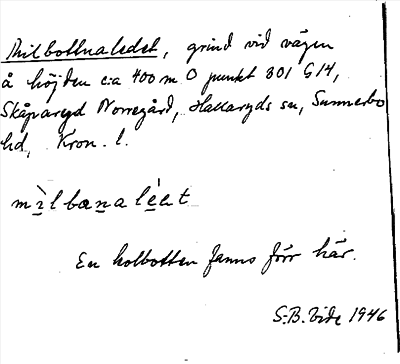 Milbottnaledet, grind vid vägen
å höjden c:a 400 m O punkt 801 G14,
Skåparyd Norregård, Hallaryds sn, Sunnerbo
hd, Kron. l.
mìlbanaléat
En kolbotten fanns förr här.
S.B. Vide 1946